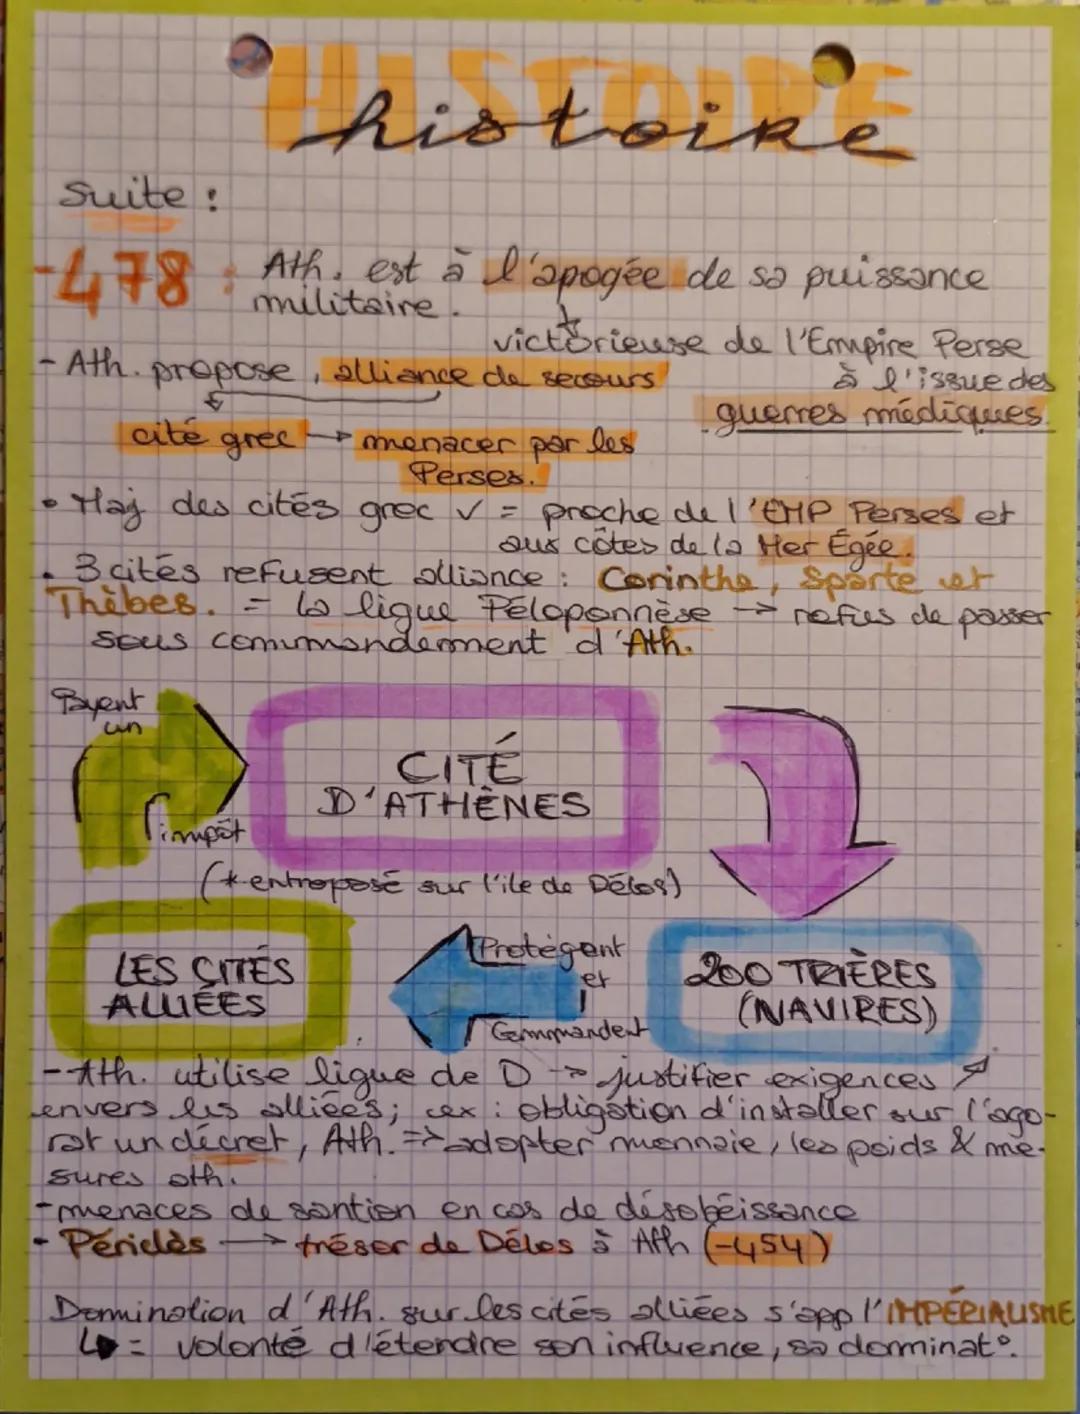 HISTOIRE
histoire
Suite :
-478 : Ath. est à l'apogée de sa puissance
militaire.
victorieuse de l'Empire Perse
- Ath. propose, alliance de secours
à l'issue des
guerres médiques.
cité grec → menacer par les
Perses.
• Maj des cités grec ✓ = proche de l'EMP Perses et
aux côtes de la Mer Égée.
• 3 cités refusent alliance : Corinthe, Sparte et
Thèbes. = la ligue Péloponnèse → refus de passer
sous commanderment d'Ath.
Payent
un
CITÉ
D'ATHÈNES
impôt
(* entreposé sur l'ile de Délos)
LES CITÉS
ALLIÉES
Protègent
et
Commandent
200 TRIÈRES
(NAVIRES)
- Ath. utilise ligue de D → justifier exigences ↗
envers les alliées; ex : obligation d'installer sur l'ago-
rat un décret, Ath. => adopter monnaie, les poids & me-
sures ath.
- menaces de santion en cas de désobéissance
- Périclès → trésor de Délos à Ath (-454)
Domination d'Ath. sur les cités alliées s'app l'IMPÉRIALISME
↳ = volonté d'étendre son influence, sa dominat°.